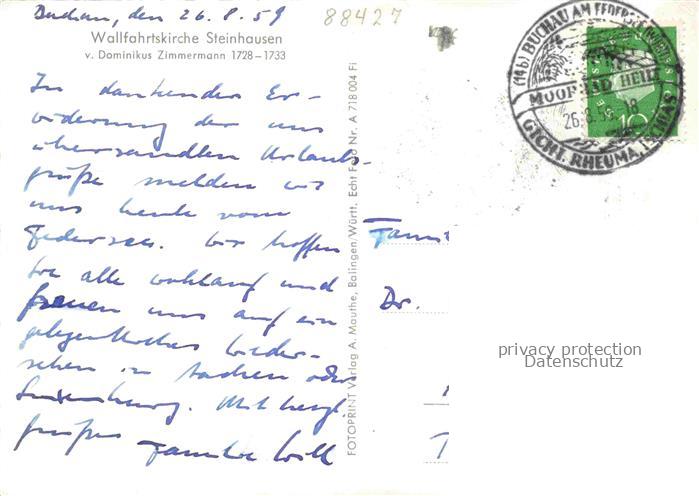 Buchau, den 26.8.59
88427
Wallfahrtskirche Steinhausen
v. Dominikus Zimmermann 1728–1733
In dankender Er-
widerung der uns
übersandten Urlaubs-
grüße melden wir
uns heute vom
Federsee. Wir hoffen
Sie alle wohlauf und
freuen uns auf ein
gelegentliches Wieder-
sehen in Aachen oder
Luxemburg. Mit herzl.
Grüßen Familie Will
FOTOPRINT Verlag A. Mauthe, Balingen/Württ. Echt Foto Nr. A 718 004 Fi
(14b) BUCHAU AM FEDERSEE
MOORBAD HEILT
26.8.59.18
GICHT, RHEUMA, ISCHIAS
10
Fami
Dr.
privacy protection
Datenschutz